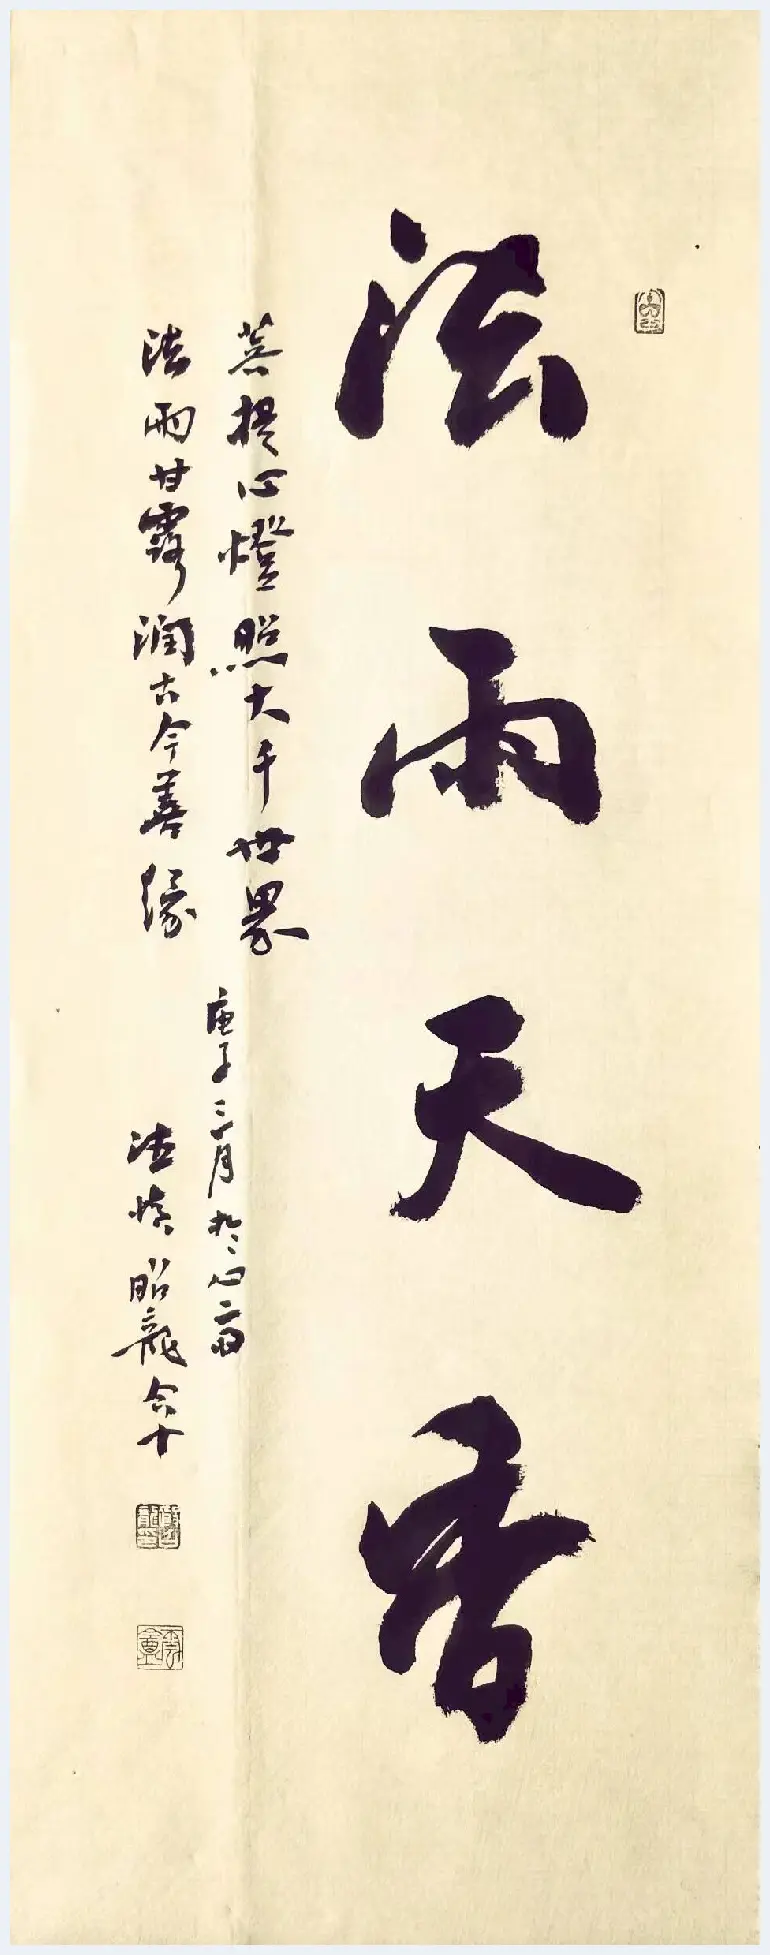 法雨天香
菩提心燈照大千世界
庚子三月於心
法雨甘露潤古今善緣
法慎昭龍合十